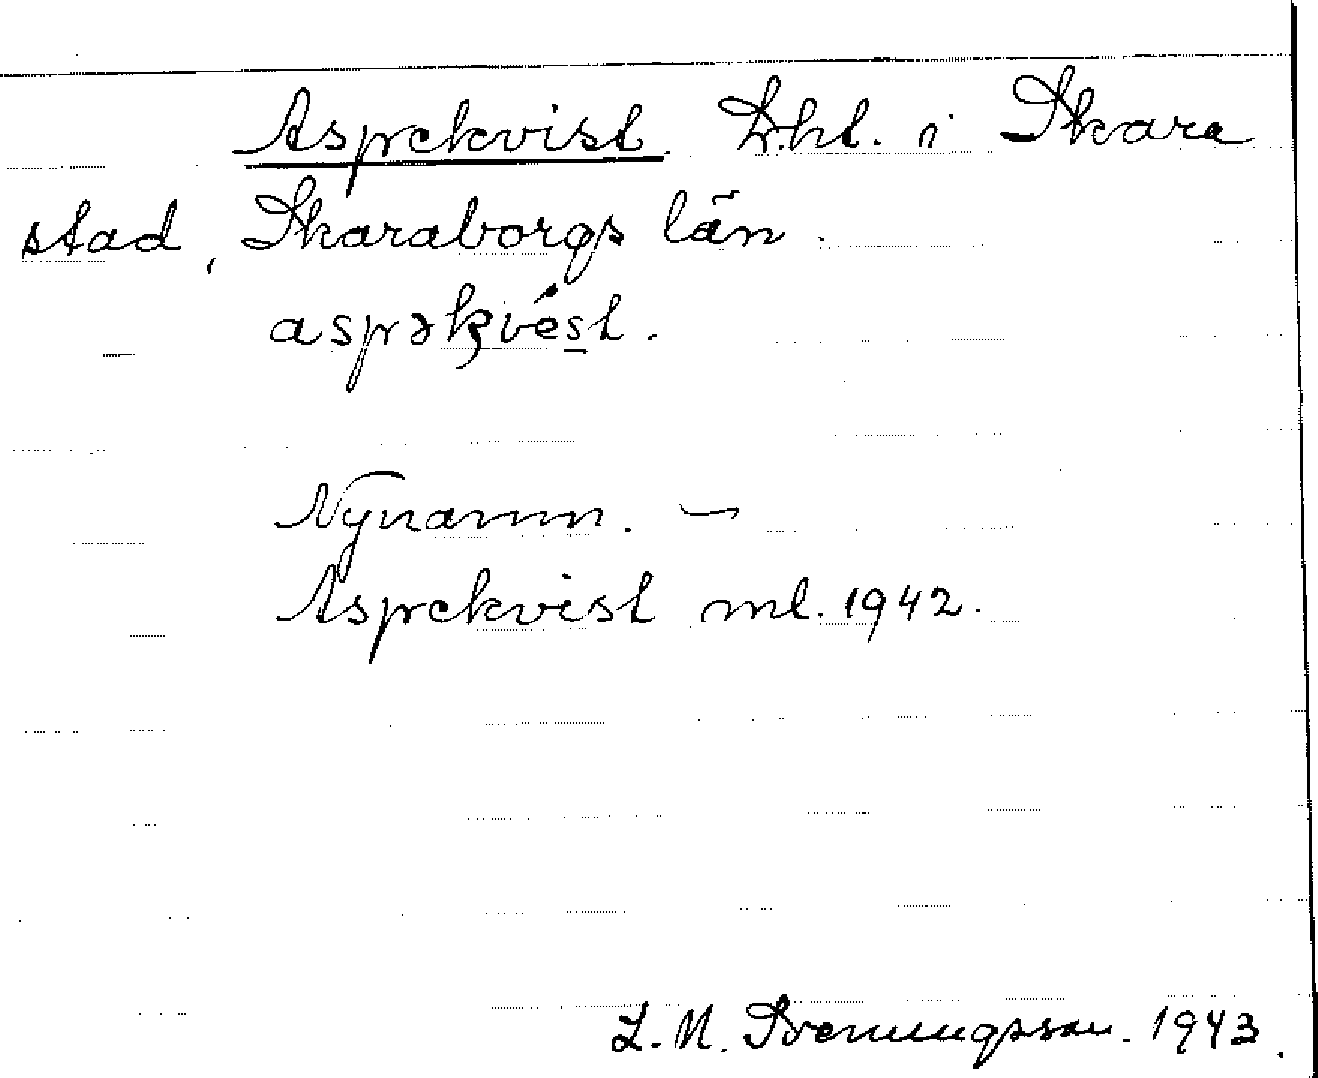 Asprekvist. Lht. i Skara
stad, Skaraborgs län.
asprəkvést.
Nynamn. —
Asprekvist ml. 1942.
L. M. Svenungsson. 1943.